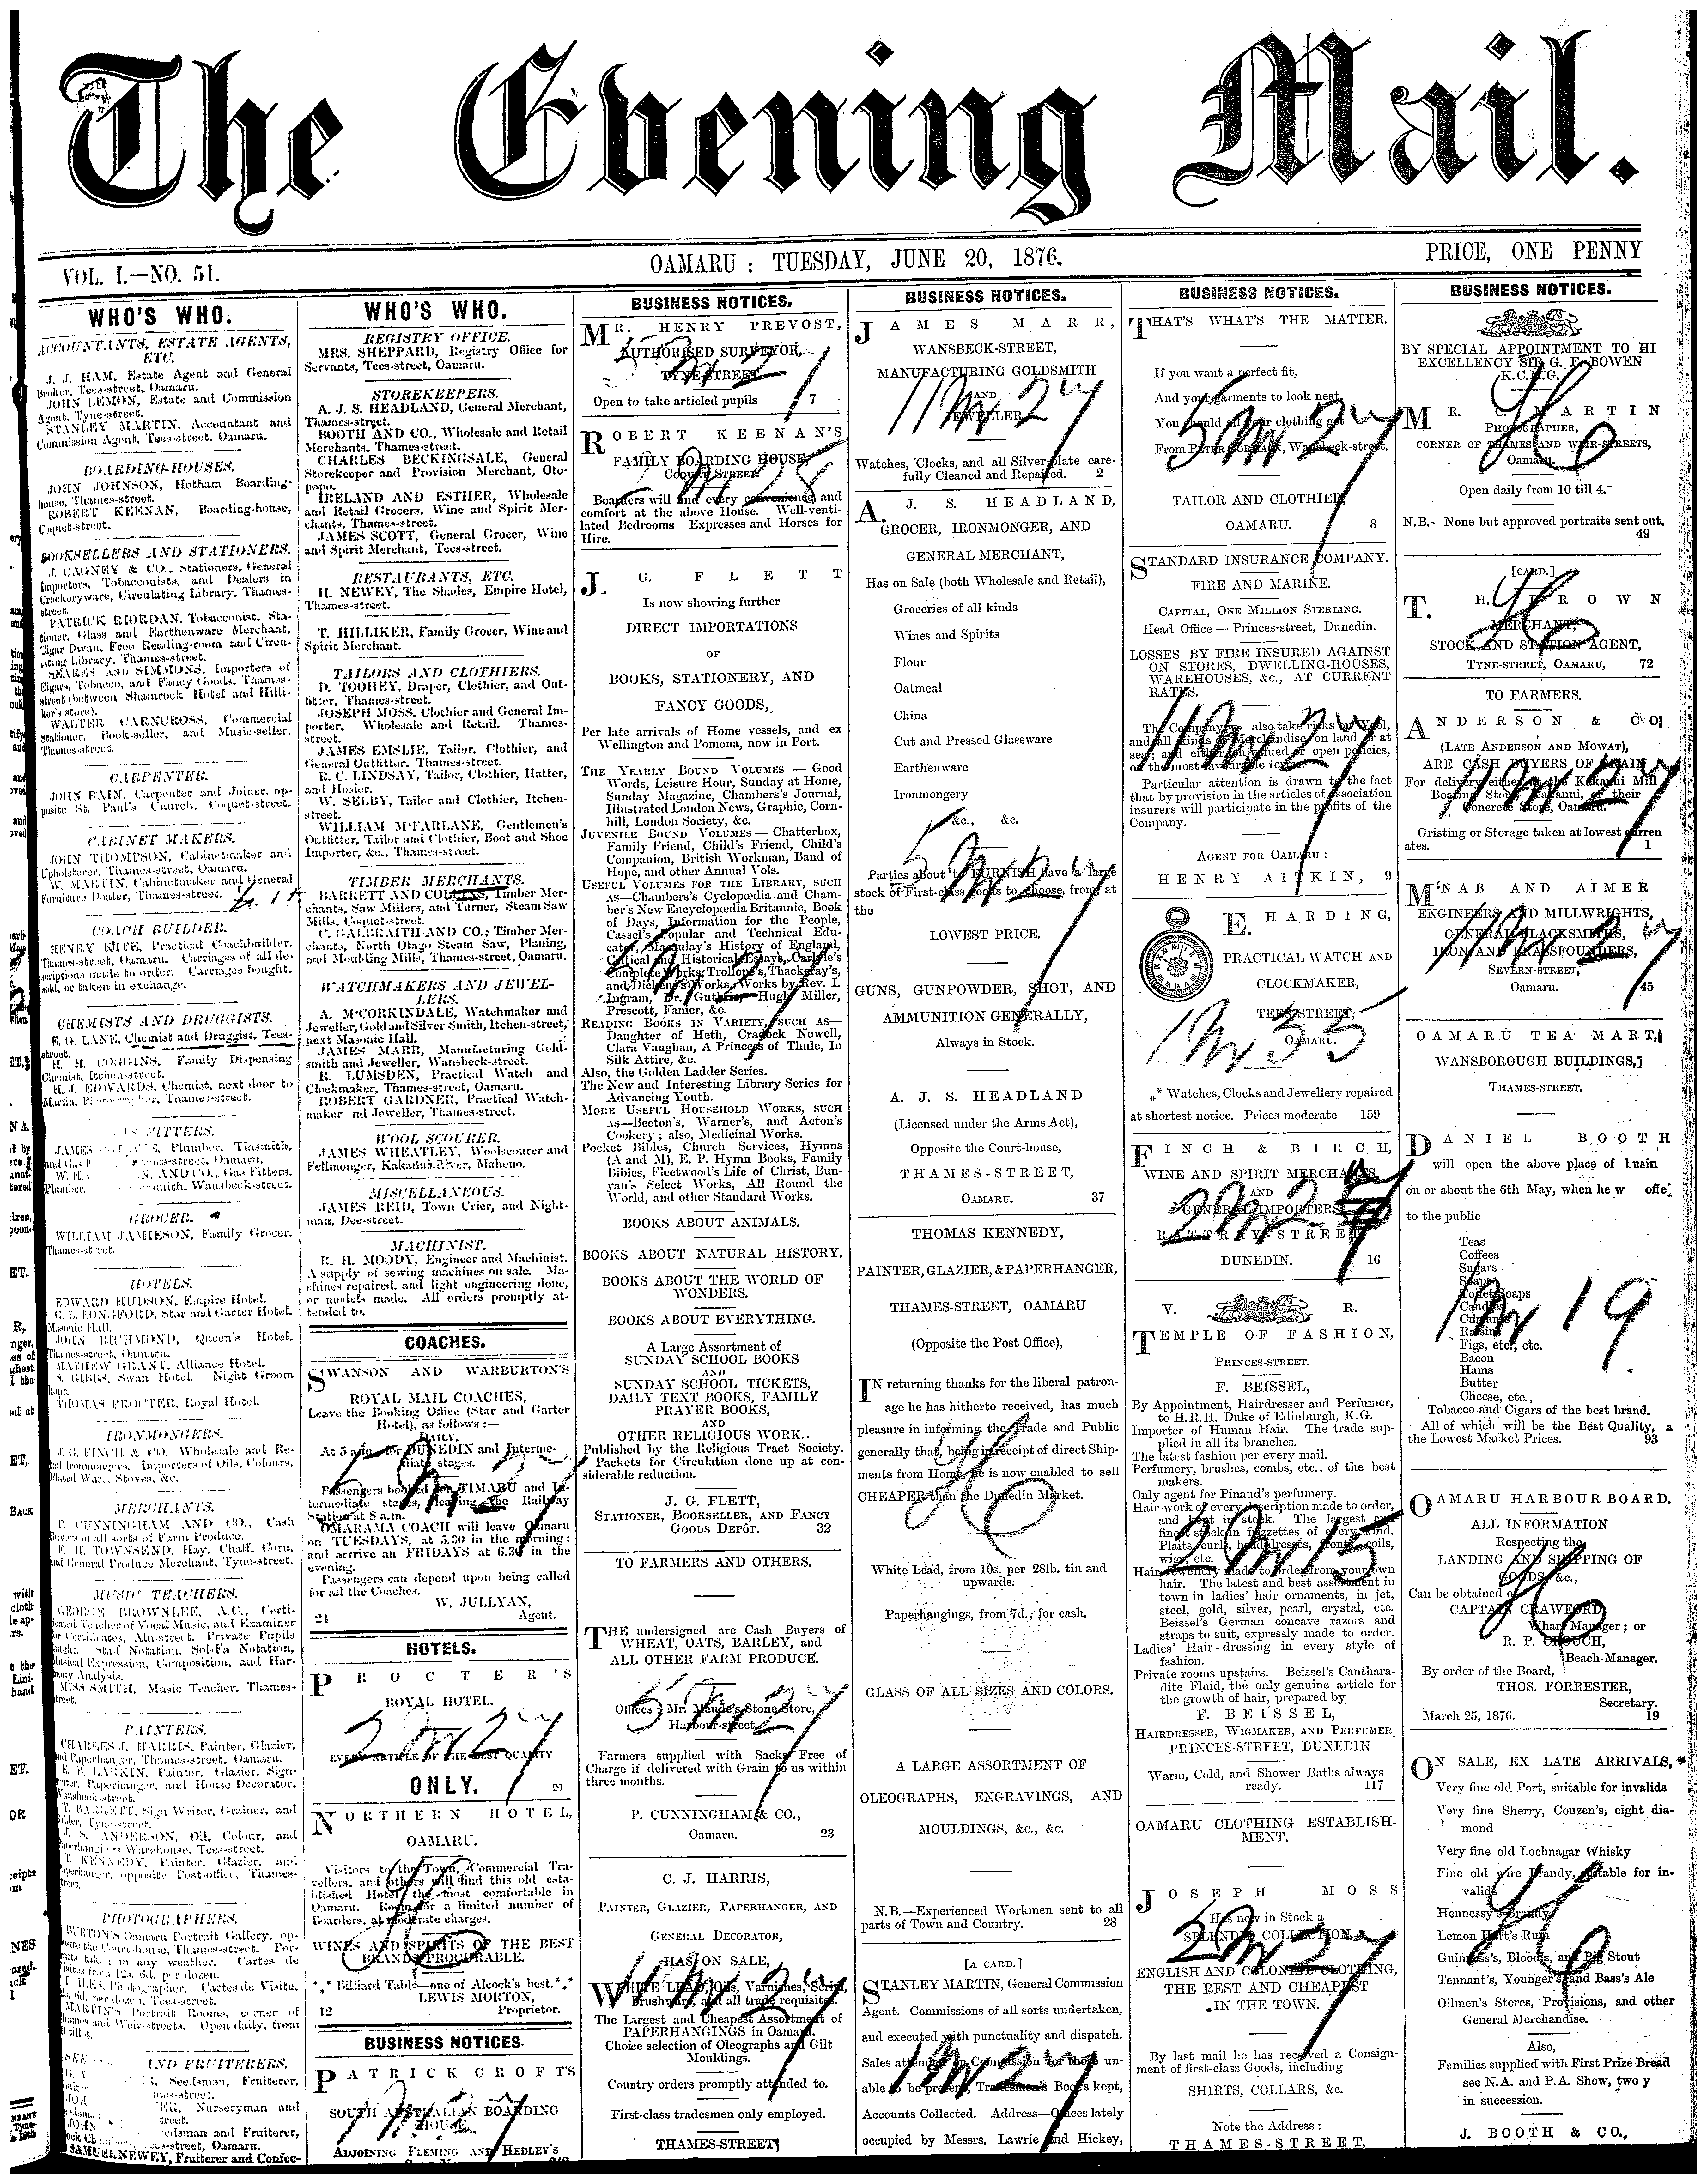 The Evening Mail.
VOL. I.—NO. 51.
OAMARU : TUESDAY, JUNE 20, 1876.
PRICE, ONE PENNY
WHO'S WHO.
ACCOUNTANTS, ESTATE AGENTS,
ETC.
J. J. HAM, Estate Agent and General
Broker, Tees-street, Oamaru.
JOHN LEMON, Estate and Commission
Agent, Tyne-street.
STANLEY MARTIN, Accountant and
Commission Agent, Tees-street, Oamaru.
BOARDING-HOUSES.
JOHN JOHNSON, Hotham Boarding-
house, Thames-street.
ROBERT KEENAN, Boarding-house,
Coquet-street.
BOOKSELLERS AND STATIONERS.
J. CAGNEY & CO., Stationers, General
Importers, Tobacconists, and Dealers in
Crockeryware, Circulating Library, Thames-
street.
PATRICK RIORDAN, Tobacconist, Sta-
tioner, Glass and Earthenware Merchant,
Cigar Divan, Free Reading-room and Circu-
lating Library, Thames-street.
SEARES AND SIMMONS, Importers of
Cigars, Tobacco, and Fancy Goods, Thames-
street (between Shamrock Hotel and Hilli-
ker's store).
WALTER CARNCROSS, Commercial
Stationer, Book-seller, and Music-seller,
Thames-street.
CARPENTER.
JOHN BAIN, Carpenter and Joiner, op-
posite St. Paul's Church, Coquet-street.
CABINET MAKERS.
JOHN THOMPSON, Cabinetmaker and
Upholsterer, Thames-street, Oamaru.
W. MARTIN, Cabinetmaker and General
Furniture Dealer, Thames-street.
COACH BUILDER.
HENRY KITE, Practical Coachbuilder,
Thames-street, Oamaru. Carriages of all de-
scriptions made to order. Carriages bought,
sold, or taken in exchange.
CHEMISTS AND DRUGGISTS.
E. G. LANE, Chemist and Druggist, Tees-
street.
H. H. COGGINS, Family Dispensing
Chemist, Itchen-street.
H. J. EDWARDS, Chemist, next door to
Martin, Photographer, Thames-street.
FITTERS.
JAMES Plumber, Tinsmith,
and Gas Thames-street, Oamaru.
W. H. AND CO., Gas Fitters,
Plumber, Wansbeck-street.
GROCER.
WILLIAM JAMIESON, Family Grocer,
Thames-street.
HOTELS.
EDWARD HUDSON, Empire Hotel.
G. L. LONGFORD, Star and Garter Hotel,
Masonic Hall.
JOHN RICHMOND, Queen's Hotel,
Thames-street, Oamaru.
MATHEW GRANT, Alliance Hotel.
S. GIBBS, Swan Hotel. Night Groom
kept.
THOMAS PROCTER, Royal Hotel.
IRONMONGERS.
J. G. FINCH & CO. Wholesale and Re-
tail Ironmongers. Importers of Oils, Colours,
Plated Ware, Stoves, &c.
MERCHANTS.
P. CUNNINGHAM AND CO., Cash
Buyers of all sorts of Farm Produce.
F. H. TOWNSEND, Hay, Chaff, Corn,
and General Produce Merchant, Tyne-street.
MUSIC TEACHERS.
GEORGE BROWNLEE, A.C., Certi-
ficated Teacher of Vocal Music, and Examiner
for Certificates, Aln-street. Private Pupils
taught. Staff Notation, Sol-Fa Notation,
Musical Expression, Composition, and Har-
mony Analysis.
MISS SMITH, Music Teacher, Thames-
street.
PAINTERS.
CHARLES J. HARRIS, Painter, Glazier,
and Paperhanger, Thames-street, Oamaru.
E. B. LARKIN, Painter, Glazier, Sign-
writer, Paperhanger, and House Decorator,
Wansbeck-street.
T. BARRETT, Sign Writer, Grainer, and
Gilder, Tyne-street.
J. S. ANDERSON, Oil, Colour, and
Paperhangings Warehouse, Tees-street.
T. KENNEDY, Painter, Glazier, and
Paperhanger, opposite Post-office, Thames-
street.
PHOTOGRAPHERS.
BURTON'S Oamaru Portrait Gallery, op-
posite the Court-house, Thames-street. Por-
traits taken in any weather. Cartes de
Visites from 12s. 6d. per dozen.
I. ILES, Photographer. Cartes de Visite,
6d. per dozen, Tees-street.
MARTIN'S Portrait Rooms, corner of
Thames and Weir-streets. Open daily, from
till 4.
AND FRUITERERS.
Seedsman, Fruiterer,
Thames-street.
Nurseryman and
street.
JOHN Seedsman and Fruiterer,
street, Oamaru.
SAMUEL NEWEY, Fruiterer and Confec-
WHO'S WHO.
REGISTRY OFFICE.
MRS. SHEPPARD, Registry Office for
Servants, Tees-street, Oamaru.
STOREKEEPERS.
A. J. S. HEADLAND, General Merchant,
Thames-street.
BOOTH AND CO., Wholesale and Retail
Merchants, Thames-street.
CHARLES BECKINGSALE, General
Storekeeper and Provision Merchant, Oto-
popo.
IRELAND AND ESTHER, Wholesale
and Retail Grocers, Wine and Spirit Mer-
chants, Thames-street.
JAMES SCOTT, General Grocer, Wine
and Spirit Merchant, Tees-street.
RESTAURANTS, ETC.
H. NEWEY, The Shades, Empire Hotel,
Thames-street.
T. HILLIKER, Family Grocer, Wine and
Spirit Merchant.
TAILORS AND CLOTHIERS.
D. TOOHEY, Draper, Clothier, and Out-
titter, Thames-street.
JOSEPH MOSS, Clothier and General Im-
porter. Wholesale and Retail. Thames-
street.
JAMES EMSLIE, Tailor, Clothier, and
General Outfitter, Thames-street.
R. C. LINDSAY, Tailor, Clothier, Hatter,
and Hosier.
W. SELBY, Tailor and Clothier, Itchen-
street.
WILLIAM M'FARLANE, Gentlemen's
Outfitter, Tailor and Clothier, Boot and Shoe
Importer, &c., Thames-street.
TIMBER MERCHANTS.
BARRETT AND COLLINS, Timber Mer-
chants, Saw Millers, and Turner, Steam Saw
Mills, Coquet-street.
C. GALBRAITH AND CO.; Timber Mer-
chants, North Otago Steam Saw, Planing,
and Moulding Mills, Thames-street, Oamaru.
WATCHMAKERS AND JEWEL-
LERS.
A. M'CORKINDALE, Watchmaker and
Jeweller, Gold and Silver Smith, Itchen-street,
next Masonic Hall.
JAMES MARR, Manufacturing Gold-
smith and Jeweller, Wansbeck-street.
R. LUMSDEN, Practical Watch and
Clockmaker, Thames-street, Oamaru.
ROBERT GARDNER, Practical Watch-
maker nd Jeweller, Thames-street.
WOOL SCOURER.
JAMES WHEATLEY, Woolscourer and
Fellmonger, Kakanui River, Maheno.
MISCELLANEOUS.
JAMES REID, Town Crier, and Night-
man, Dee-street.
MACHINIST.
R. H. MOODY, Engineer and Machinist.
A supply of sewing machines on sale. Ma-
chines repaired, and light engineering done,
or models made. All orders promptly at-
tended to.
COACHES.
SWANSON AND WARBURTON'S
ROYAL MAIL COACHES,
Leave the Booking Office (Star and Garter
Hotel), as follows :—
DAILY,
At 5 a.m. for DUNEDIN and Interme-
diate stages.
Passengers booked for TIMARU and In-
termediate stages, leaving the Railway
Station at 8 a.m.
OMARAMA COACH will leave Oamaru
on TUESDAYS, at 5.30 in the morning :
and arrrive an FRIDAYS at 6.30 in the
evening.
Passengers can depend upon being called
for all the Coaches.
W. JULLYAN,
24 Agent.
HOTELS.
PROCTER'S
ROYAL HOTEL.
EVERY ARTICLE OF THE BEST QUALITY
ONLY. 20
NORTHERN HOTEL,
OAMARU.
Visitors to the Town, Commercial Tra-
vellers, and others will find this old esta-
blished Hotel the most comfortable in
Oamaru. Room for a limited number of
Boarders, at moderate charges.
WINES AND SPIRITS OF THE BEST
BRANDS PROCURABLE.
*.* Billiard Table—one of Alcock's best.*.*
LEWIS MORTON,
12 Proprietor.
BUSINESS NOTICES.
PATRICK CROFTS
SOUTH AUSTRALIAN BOARDING
HOUSE,
ADJOINING FLEMING AND HEDLEY'S
BUSINESS NOTICES.
MR. HENRY PREVOST,
AUTHORISED SURVEYOR,
TYNE-STREET.
Open to take articled pupils 7
ROBERT KEENAN'S
FAMILY BOARDING HOUSE,
COQUET STREET.
Boarders will find every convenience and
comfort at the above House. Well-venti-
lated Bedrooms Expresses and Horses for
Hire.
J. G. FLETT
Is now showing further
DIRECT IMPORTATIONS
OF
BOOKS, STATIONERY, AND
FANCY GOODS,
Per late arrivals of Home vessels, and ex
Wellington and Pomona, now in Port.
THE YEARLY BOUND VOLUMES — Good
Words, Leisure Hour, Sunday at Home,
Sunday Magazine, Chambers's Journal,
Illustrated London News, Graphic, Corn-
hill, London Society, &c.
JUVENILE BOUND VOLUMES — Chatterbox,
Family Friend, Child's Friend, Child's
Companion, British Workman, Band of
Hope, and other Annual Vols.
USEFUL VOLUMES FOR THE LIBRARY, SUCH
AS—Chambers's Cyclopædia and Cham-
ber's New Encyclopædia Britannic, Book
of Days, Information for the People,
Cassel's Popular and Technical Edu-
cator, Macaulay's History of England,
Critical and Historical Essays, Carlyle's
Complete Works, Trollope's, Thackeray's,
and Dickens's Works, Works by Rev. I.
Ingram, Dr. Guthrie, Hugh Miller,
Prescott, Fanier, &c.
READING BOOKS IN VARIETY, SUCH AS—
Daughter of Heth, Cradock Nowell,
Clara Vaughan, A Princess of Thule, In
Silk Attire, &c.
Also, the Golden Ladder Series.
The New and Interesting Library Series for
Advancing Youth.
MORE USEFUL HOUSEHOLD WORKS, SUCH
AS—Beeton's, Warner's, and Acton's
Cookery ; also, Medicinal Works.
Pocket Bibles, Church Services, Hymns
(A and M), E. P. Hymn Books, Family
Bibles, Fleetwood's Life of Christ, Bun-
yan's Select Works, All Round the
World, and other Standard Works.
BOOKS ABOUT ANIMALS.
BOOKS ABOUT NATURAL HISTORY.
BOOKS ABOUT THE WORLD OF
WONDERS.
BOOKS ABOUT EVERYTHING.
A Large Assortment of
SUNDAY SCHOOL BOOKS
AND
SUNDAY SCHOOL TICKETS,
DAILY TEXT BOOKS, FAMILY
PRAYER BOOKS,
AND
OTHER RELIGIOUS WORK..
Published by the Religious Tract Society.
Packets for Circulation done up at con-
siderable reduction.
J. G. FLETT,
STATIONER, BOOKSELLER, AND FANCY
GOODS DEPÔT. 32
TO FARMERS AND OTHERS.
THE undersigned are Cash Buyers of
WHEAT, OATS, BARLEY, and
ALL OTHER FARM PRODUCE.
Offices : Mr. Maude's Stone Store,
Harbour-street.
Farmers supplied with Sacks Free of
Charge if delivered with Grain to us within
three months.
P. CUNNINGHAM & CO.,
Oamaru. 23
C. J. HARRIS,
PAINTER, GLAZIER, PAPERHANGER, AND
GENERAL DECORATOR,
HAS ON SALE,
WHITE LEAD, Oils, Varnishes, Scrim,
Brushware, and all trade requisites.
The Largest and Cheapest Assortment of
PAPERHANGINGS in Oamaru.
Choice selection of Oleographs and Gilt
Mouldings.
Country orders promptly attended to.
First-class tradesmen only employed.
THAMES-STREET
BUSINESS NOTICES.
JAMES MARR,
WANSBECK-STREET,
MANUFACTURING GOLDSMITH
AND
JEWELLER
Watches, Clocks, and all Silver-plate care-
fully Cleaned and Repaired. 2
A. J. S. HEADLAND,
GROCER, IRONMONGER, AND
GENERAL MERCHANT,
Has on Sale (both Wholesale and Retail),
Groceries of all kinds
Wines and Spirits
Flour
Oatmeal
China
Cut and Pressed Glassware
Earthenware
Ironmongery
&c., &c.
Parties about to FURNISH have a large
stock of First-class goods to choose from at
the
LOWEST PRICE.
GUNS, GUNPOWDER, SHOT, AND
AMMUNITION GENERALLY,
Always in Stock.
A. J. S. HEADLAND
(Licensed under the Arms Act),
Opposite the Court-house,
THAMES-STREET,
OAMARU. 37
THOMAS KENNEDY,
PAINTER, GLAZIER, & PAPERHANGER,
THAMES-STREET, OAMARU
(Opposite the Post Office),
IN returning thanks for the liberal patron-
age he has hitherto received, has much
pleasure in informing the Trade and Public
generally that, being in receipt of direct Ship-
ments from Home, he is now enabled to sell
CHEAPER than the Dunedin Market.
White Lead, from 10s. per 28lb. tin and
upwards.
Paperhangings, from 7d., for cash.
GLASS OF ALL SIZES AND COLORS.
A LARGE ASSORTMENT OF
OLEOGRAPHS, ENGRAVINGS, AND
MOULDINGS, &c., &c.
N.B.—Experienced Workmen sent to all
parts of Town and Country. 28
[A CARD.]
STANLEY MARTIN, General Commission
Agent. Commissions of all sorts undertaken,
and executed with punctuality and dispatch.
Sales attended on Commission for those un-
able to be present, Tradesmen's Books kept,
Accounts Collected. Address—Offices lately
occupied by Messrs. Lawrie and Hickey,
BUSINESS NOTICES.
THAT'S WHAT'S THE MATTER.
If you want a perfect fit,
And your garments to look neat,
You should all your clothing get
From PETER CORMACK, Wansbeck-street.
TAILOR AND CLOTHIER,
OAMARU. 8
STANDARD INSURANCE COMPANY.
FIRE AND MARINE.
CAPITAL, ONE MILLION STERLING.
Head Office — Princes-street, Dunedin.
LOSSES BY FIRE INSURED AGAINST
ON STORES, DWELLING-HOUSES,
WAREHOUSES, &c., AT CURRENT
RATES.
The Company also take risks on Wool,
and all kinds of Merchandise, on land or at
sea, and either on valued or open policies,
on the most favourable terms.
Particular attention is drawn to the fact
that by provision in the articles of association
insurers will participate in the profits of the
Company.
AGENT FOR OAMARU :
HENRY AITKIN, 9
E. HARDING,
PRACTICAL WATCH AND
CLOCKMAKER,
TEES STREET,
OAMARU.
*** Watches, Clocks and Jewellery repaired
at shortest notice. Prices moderate 159
FINCH & BIRCH,
WINE AND SPIRIT MERCHANTS,
AND
GENERAL IMPORTERS,
RATTRAY-STREET,
DUNEDIN. 16
V. R.
TEMPLE OF FASHION,
PRINCES-STREET.
F. BEISSEL,
By Appointment, Hairdresser and Perfumer,
to H.R.H. Duke of Edinburgh, K.G.
Importer of Human Hair. The trade sup-
plied in all its branches.
The latest fashion per every mail.
Perfumery, brushes, combs, etc., of the best
makers.
Only agent for Pinaud's perfumery.
Hair-work of every description made to order,
and kept in stock. The largest and
finest stock in frizzettes of every kind.
Plaits, curls, headdresses, fronts, coils,
wigs, etc.
Hair Jewellery made to order from your own
hair. The latest and best assortment in
town in ladies' hair ornaments, in jet,
steel, gold, silver, pearl, crystal, etc.
Beissel's German concave razors and
straps to suit, expressly made to order.
Ladies' Hair-dressing in every style of
fashion.
Private rooms upstairs. Beissel's Canthara-
dite Fluid, the only genuine article for
the growth of hair, prepared by
F. BEISSEL,
HAIRDRESSER, WIGMAKER, AND PERFUMER
PRINCES-STREET, DUNEDIN
Warm, Cold, and Shower Baths always
ready. 117
OAMARU CLOTHING ESTABLISH-
MENT.
JOSEPH MOSS
Has now in Stock a
SPLENDID COLLECTION
ENGLISH AND COLONIAL CLOTHING,
THE BEST AND CHEAPEST
IN THE TOWN.
By last mail he has received a Consign-
ment of first-class Goods, including
SHIRTS, COLLARS, &c.
Note the Address :
THAMES-STREET,
BUSINESS NOTICES.
BY SPECIAL APPOINTMENT TO HI
EXCELLENCY SIR G. F. BOWEN
K.C.M.G.
MR. C. MARTIN
PHOTOGRAPHER,
CORNER OF THAMES AND WEIR-STREETS,
Oamaru.
Open daily from 10 till 4.
N.B.—None but approved portraits sent out.
49
[CARD.]
T. H. BROWN
MERCHANT,
STOCK AND STATION AGENT,
TYNE-STREET, OAMARU, 72
TO FARMERS.
ANDERSON & CO
(LATE ANDERSON AND MOWAT),
ARE CASH BUYERS OF GRAIN
For delivery either at the Kakanui Mill
Boating Store, Kakanui, or their
Concrete Store, Oamaru.
Gristing or Storage taken at lowest curren
ates. 1
M'NAB AND AIMER
ENGINEERS AND MILLWRIGHTS,
GENERAL BLACKSMITHS,
IRON AND BRASSFOUNDERS,
SEVERN-STREET,
Oamaru. 45
OAMARU TEA MART,
WANSBOROUGH BUILDINGS,
THAMES-STREET.
DANIEL BOOTH
will open the above place of busin
on or about the 6th May, when he w offe
to the public
Teas
Coffees
Sugars
Soaps
Toilet Soaps
Candles
Currants
Raisins
Figs, etc., etc.
Bacon
Hams
Butter
Cheese, etc.,
Tobacco and Cigars of the best brand.
All of which will be the Best Quality, a
the Lowest Market Prices. 93
OAMARU HARBOUR BOARD.
ALL INFORMATION
Respecting the
LANDING AND SHIPPING OF
GOODS, &c.,
Can be obtained of
CAPTAIN CRAWFORD,
Wharf Manager ; or
R. P. CROUCH,
Beach Manager.
By order of the Board,
THOS. FORRESTER,
Secretary.
March 25, 1876. 19
ON SALE, EX LATE ARRIVALS,
Very fine old Port, suitable for invalids
Very fine Sherry, Couzen's, eight dia-
mond
Very fine old Lochnagar Whisky
Fine old wire Brandy, suitable for in-
valids
Hennessy's Brandy
Lemon Hart's Rum
Guinness's, Bloods, and Pig Stout
Tennant's, Younger's and Bass's Ale
Oilmen's Stores, Provisions, and other
General Merchandise.
Also,
Families supplied with First Prize Bread
see N.A. and P.A. Show, two y
in succession.
J. BOOTH & CO.,